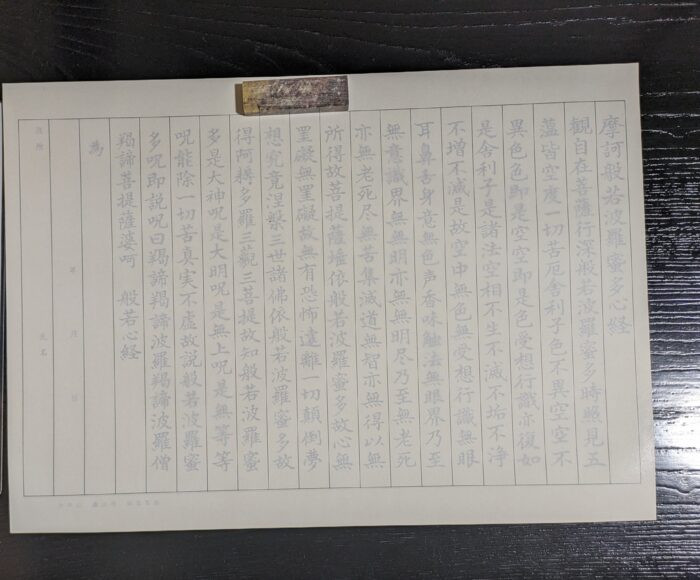 摩訶般若波羅蜜多心経
観自在菩薩行深般若波羅蜜多時照見五
蘊皆空度一切苦厄舎利子色不異空空不
異色色即是空空即是色受想行識亦復如
是舎利子是諸法空相不生不滅不垢不浄
不増不減是故空中無色無受想行識無眼
耳鼻舌身意無色声香味触法無眼界乃至
無意識界無無明亦無無明尽乃至無老死
亦無老死尽無苦集滅道無智亦無得以無
所得故菩提薩埵依般若波羅蜜多故心無
罣礙無罣礙故無有恐怖遠離一切顛倒夢
想究竟涅槃三世諸佛依般若波羅蜜多故
得阿耨多羅三藐三菩提故知般若波羅蜜
多是大神呪是大明呪是無上呪是無等等
呪能除一切苦真実不虚故説般若波羅蜜
多呪即説呪曰羯諦羯諦波羅羯諦波羅僧
羯諦菩提薩婆呵 般若心経
為
年 月 日
住所 氏名